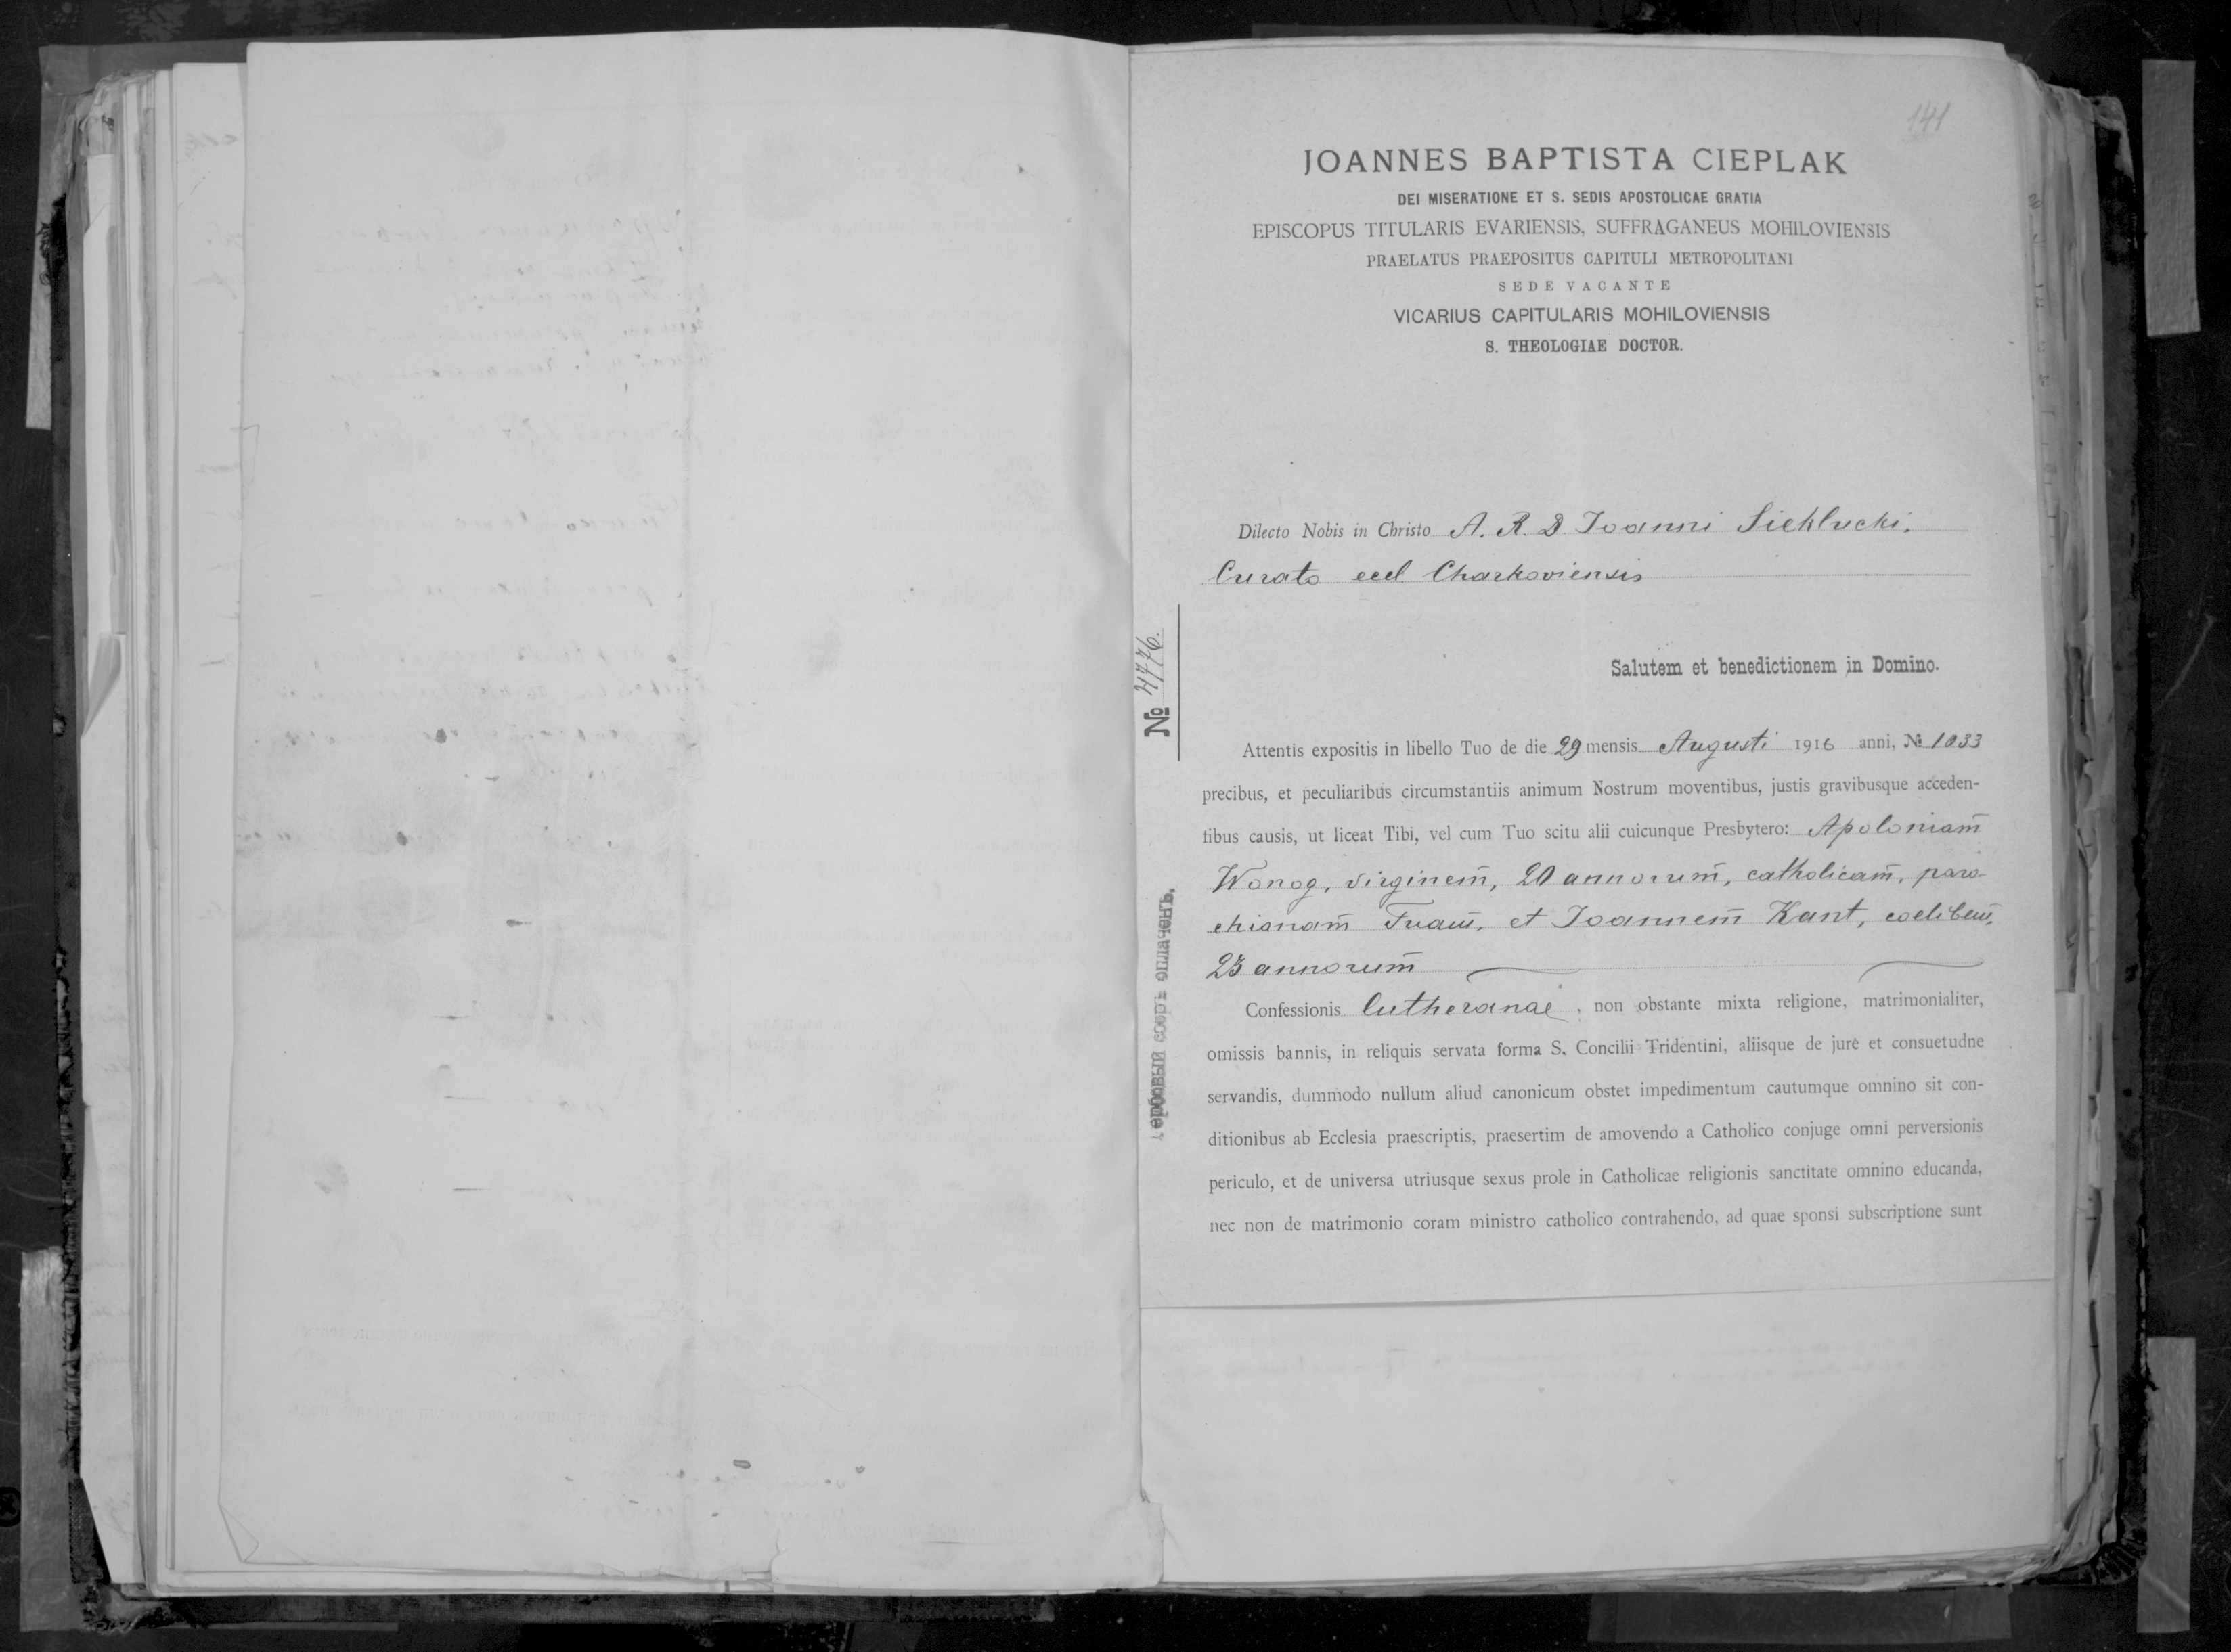 141
JOANNES BAPTISTA CIEPLAK
DEI MISERATIONE ET S. SEDIS APOSTOLICAE GRATIA
EPISCOPUS TITULARIS EVARIENSIS, SUFFRAGANEUS MOHILOVIENSIS
PRAELATUS PRAEPOSITUS CAPITULI METROPOLITANI
SEDE VACANTE
VICARIUS CAPITULARIS MOHILOVIENSIS
S. THEOLOGIAE DOCTOR.
Dilecto Nobis in Christo A. R. D Joanni Siehlucki.
Curato eccl Charkoviensis
№ 4776.
Salutem et benedictionem in Domino.
Attentis expositis in libello Tuo de die 29 mensis Augusti 1916 anni, № 1033
precibus, et peculiaribus circumstantiis animum Nostrum moventibus, justis gravibusque acceden-
tibus causis, ut liceat Tibi, vel cum Tuo scitu alii cuicunque Presbytero: Apoloniam̄
Wonog, virginem̄, 20 annorum̄, catholicam̄, paro-
chianam̄ Tuam̄, et Joannem̄ Kant, coelibem̄,
23 annorum̄
Confessionis lutheranae, non obstante mixta religione, matrimonialiter,
omissis bannis, in reliquis servata forma S. Concilii Tridentini, aliisque de jure et consuetudne
servandis, dummodo nullum aliud canonicum obstet impedimentum cautumque omnino sit con-
ditionibus ab Ecclesia praescriptis, praesertim de amovendo a Catholico conjuge omni perversionis
periculo, et de universa utriusque sexus prole in Catholicae religionis sanctitate omnino educanda,
nec non de matrimonio coram ministro catholico contrahendo, ad quae sponsi subscriptione sunt
Гербовый сборъ оплаченъ.